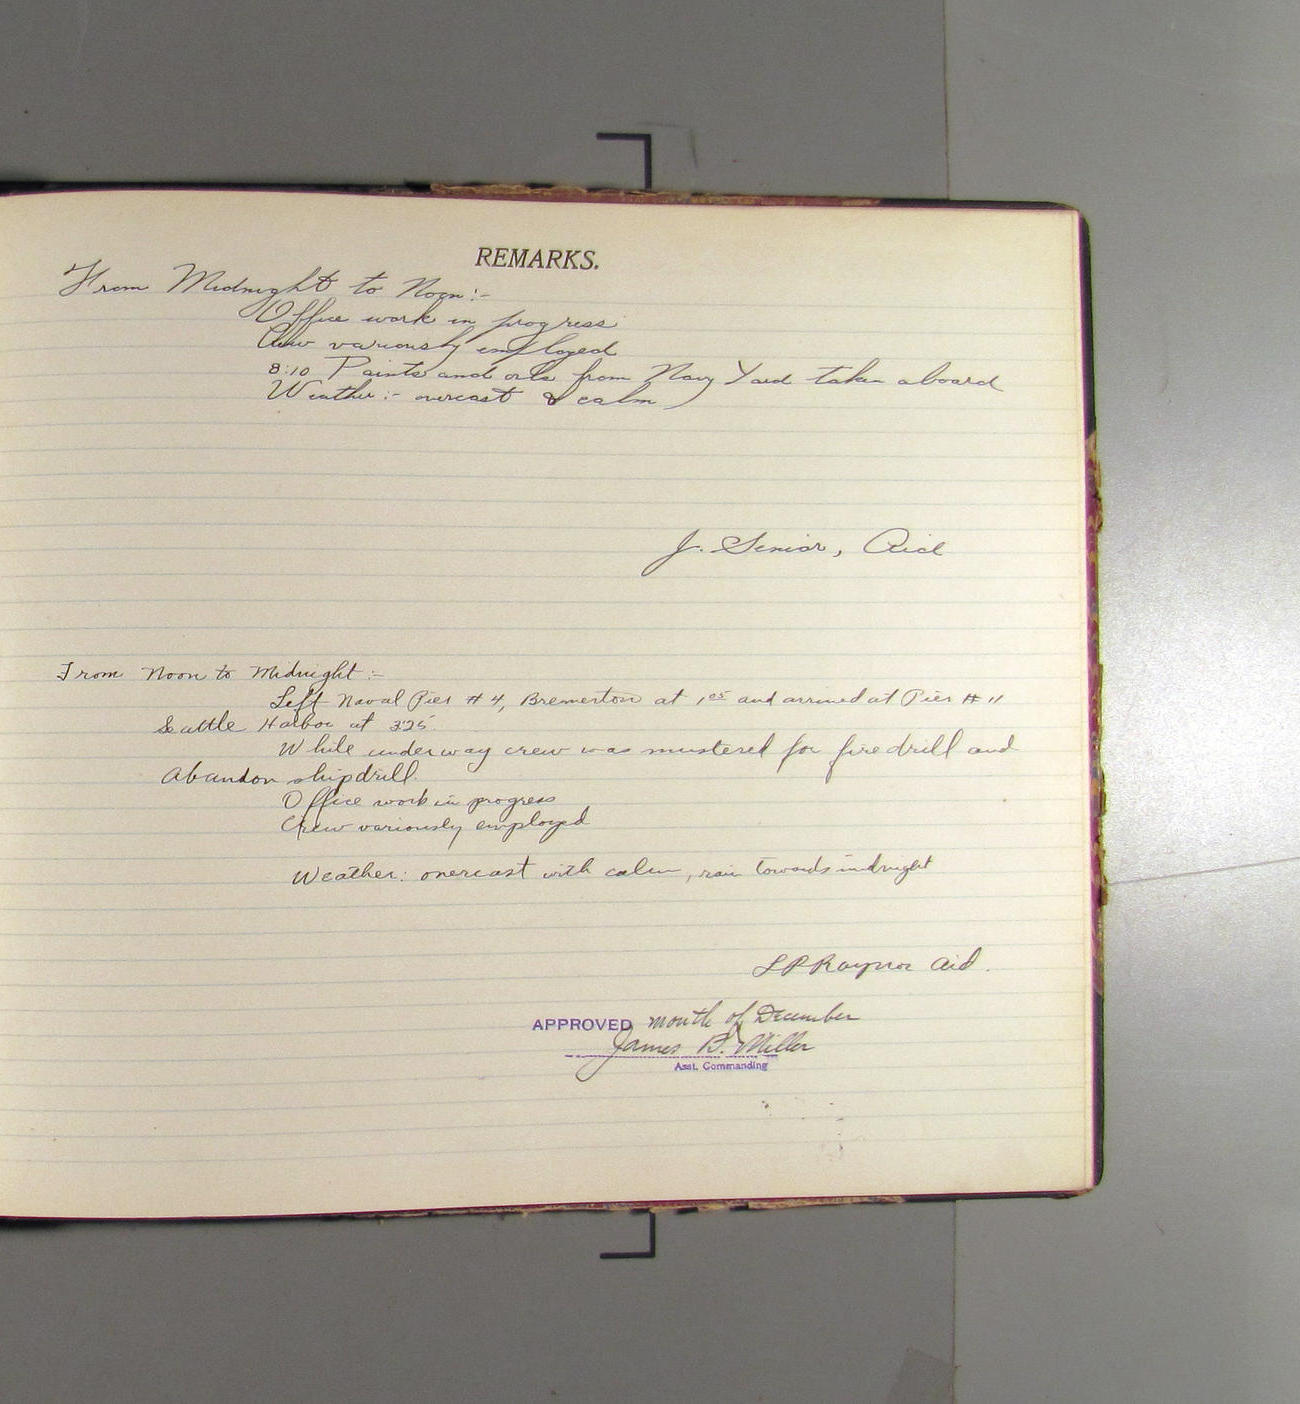 REMARKS.
From Midnight to Noon:-
Office work in progress
Crew variously employed
8:10 Paints and oils from Navy Yard taken aboard
Weather:- overcast & calm
J. Senior, Aid
From Noon to Midnight:-
Left Naval Pier #4, Bremerton at 1 05 and arrived at Pier #11
Seattle Harbor at 325
While underway crew was mustered for fire drill and
Abandon ship drill.
Office work in progress
Crew variously employed
Weather: overcast with calm, rain towards midnight
L P Raynor Aid.
APPROVED month of December
James B. Miller
Asst. Commanding